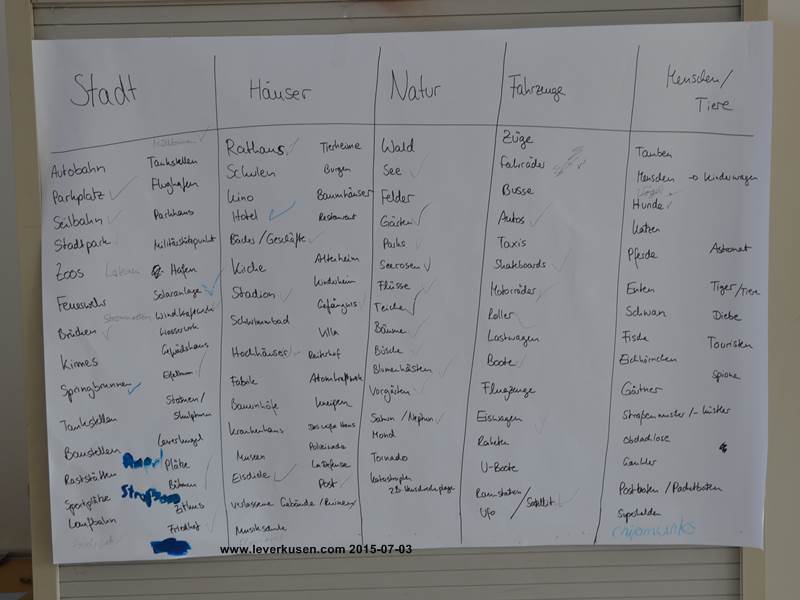 Stadt
Autobahn
Parkplatz
Seilbahn
Stadtpark
Zoos
Feuerwehr
Brücken
Kirmes
Springbrunnen
Tankstellen
Baustellen
Raststätten
Sportplätze
Laufbahn
Tankstellen
Flughafen
Parkhaus
Militärstützpunkt
Laternen
Hafen
Solaranlage
Stromnetten
Wasserwerk
Statuen/
Skulpturen
Plätze
Bühnen
Zirkus
Friedhof
Häuser
Rathaus
Schulen
Kino
Hotel
Bäcker/Geschäfte
Kirche
Stadion
Schwimmbad
Hochhäuser
Fabrik
Bauernhöfe
Krankenhaus
Museen
Eisdiele
verlassene Gebäude/Ruinen
Musikschule
Tierheime
Burgen
Baumhäuser
Restaurant
Altenheim
Kinderheim
Gefängnis
Villa
Reiterhof
Atomkraftwerk
Kneipen
Post
Natur
Wald
See
Felder
Gärten
Parks
Seerosen
Flüsse
Teiche
Bäume
Büsche
Blumenkästen
Vorgärten
Saturn/Neptun
Mond
Tornado
Katastrophen
Fahrzeuge
Züge
Fahrräder
Busse
Autos
Taxis
Skateboards
Motorräder
Roller
Lastwagen
Boote
Flugzeuge
Eiswagen
Raketen
U-Boote
Raumstation
Ufo / Satellit
Menschen/
Tiere
Tauben
Menschen -> Kinderwagen
Vögel
Hunde
Katzen
Pferde
Enten
Schwan
Fische
Eichhörnchen
Gärtner
Straßenmusiker/-künstler
obdachlose
Gaukler
Postboten/Paketboten
Superhelden
chipmunks
Astronaut
Tiger/Tiere
Diebe
Touristen
Spione
www.leverkusen.com 2015-07-03